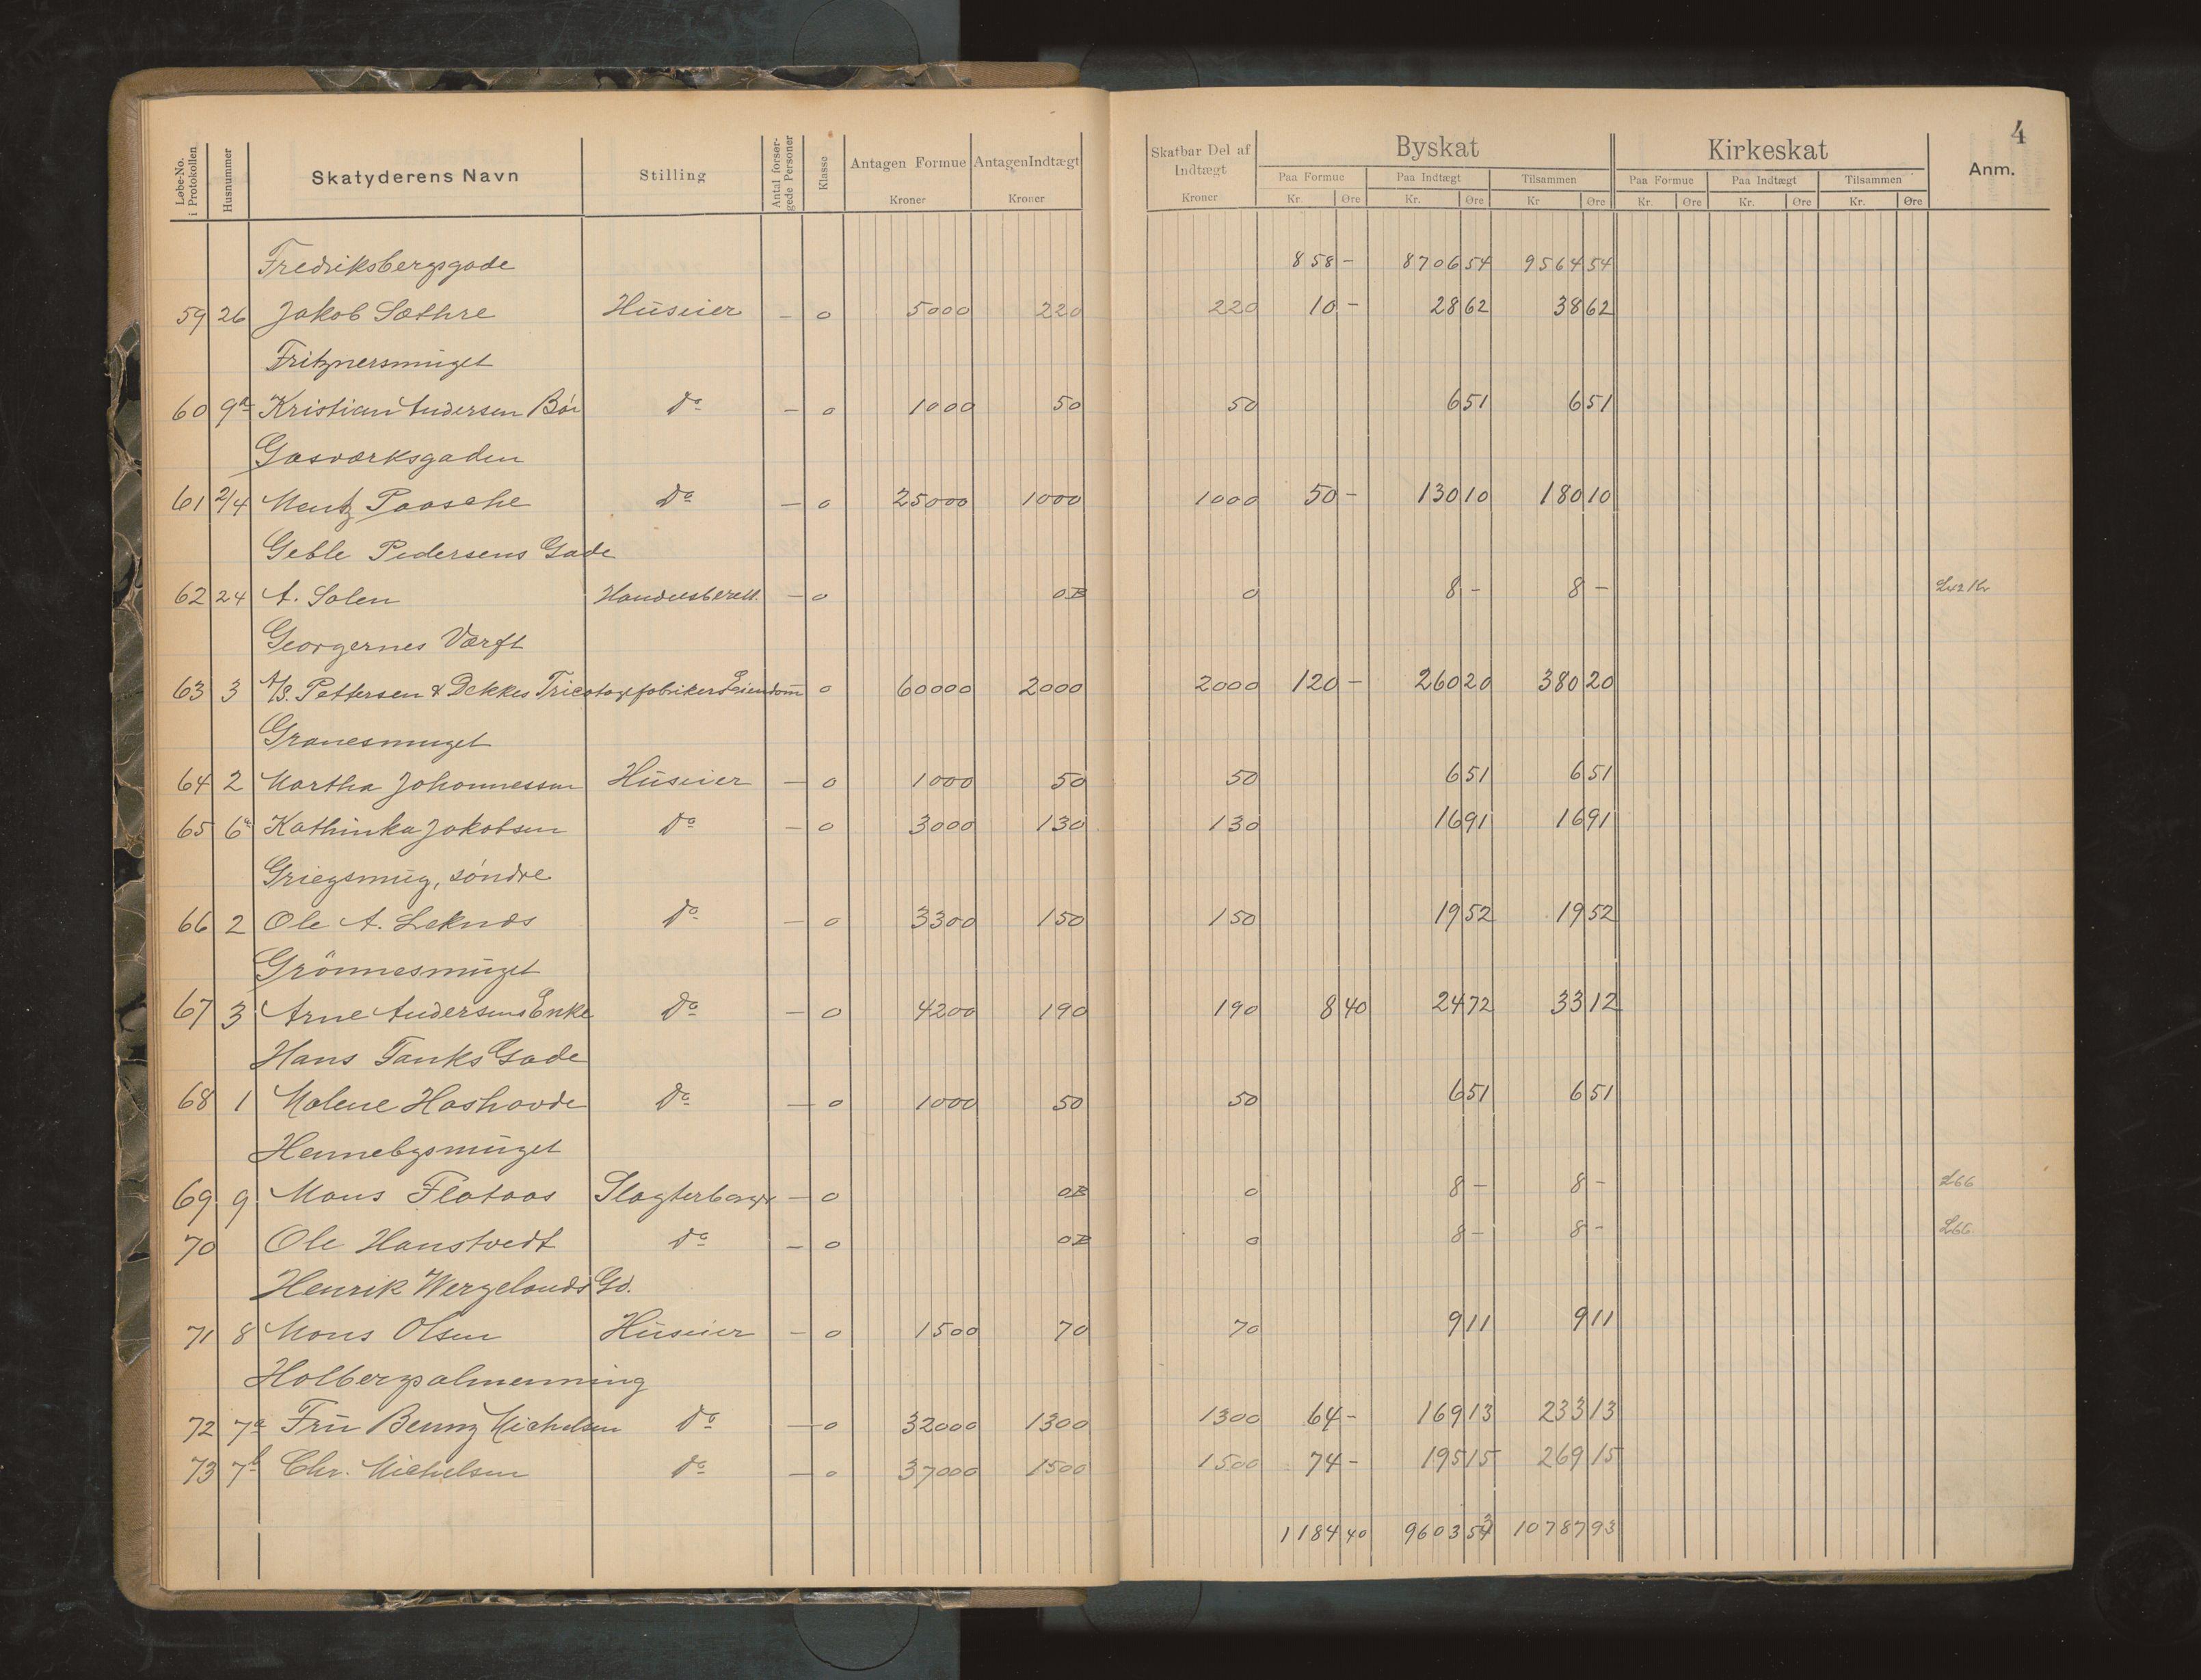 4
Løbe-No. i Protokollen | Husnummer | Skatyderens Navn | Stilling | Antal forsørgede Personer | Klasse | Antagen Formue Kroner | Antagen Indtægt Kroner | Skatbar Del af Indtægt Kroner | Byskat | Kirkeskat | Anm.
Paa Formue | Paa Indtægt | Tilsammen | Paa Formue | Paa Indtægt | Tilsammen
Kr. | Øre | Kr. | Øre | Kr | Øre | Kr. | Øre | Kr. | Øre | Kr. | Øre
Fredriksbergsgade 858 - 8706 54 9564 54
59 26 Jakob Sæthre Huseier - 0 5000 220 220 10 - 28 62 38 62
Fritznersmuget
60 9a Kristian Andersen Bór Do - 0 1000 50 50 6 51 6 51
Gasværksgaden
61 2/4 Mentz Paasche Do - 0 25000 1000 1000 50 - 130 10 180 10
Geble Pedersens Gade
62 24 A. Solen Handelsberett. - 0 0B 0 8 - 8 -
Georgernes Værft
63 3 A/S. Pettersen & Dekkes Tricotagefabrikers Eiendom 0 60000 2000 2000 120 - 260 20 380 20
Granesmuget
64 2 Martha Johannessen Huseier - 0 1000 50 50 6 51 6 51
65 6a Kathinka Jakobsen Do - 0 3000 130 130 16 91 16 91
Griegsmug, søndre
66 2 Ole A. Leknes Do - 0 3300 150 150 19 52 19 52
Grönnesmuget
67 3 Arne Andersens Enke Do - 0 4200 190 190 8 40 24 72 33 12
Hans Tanks Gade
68 1 Malene Hashovde Do - 0 1000 50 50 6 51 6 51
Hennebysmuget
69 9 Mons Flataas Slagterborger - 0 0B 0 8 - 8 - L66
70 Ole Hanstvedt Do - 0 0B 0 8 - 8 - L66
Henrik Wergelands Gd.
71 8 Mons Olsen Huseier - 0 1500 70 70 9 11 9 11
Holbergsalmenning
72 7a Fru Benny Michelsen Do - 0 32000 1300 1300 64 - 169 13 233 13
73 7b Chr. Michelsen Do - 0 37000 1500 1500 74 - 195 15 269 15
1184 40 9603 53 10787 93